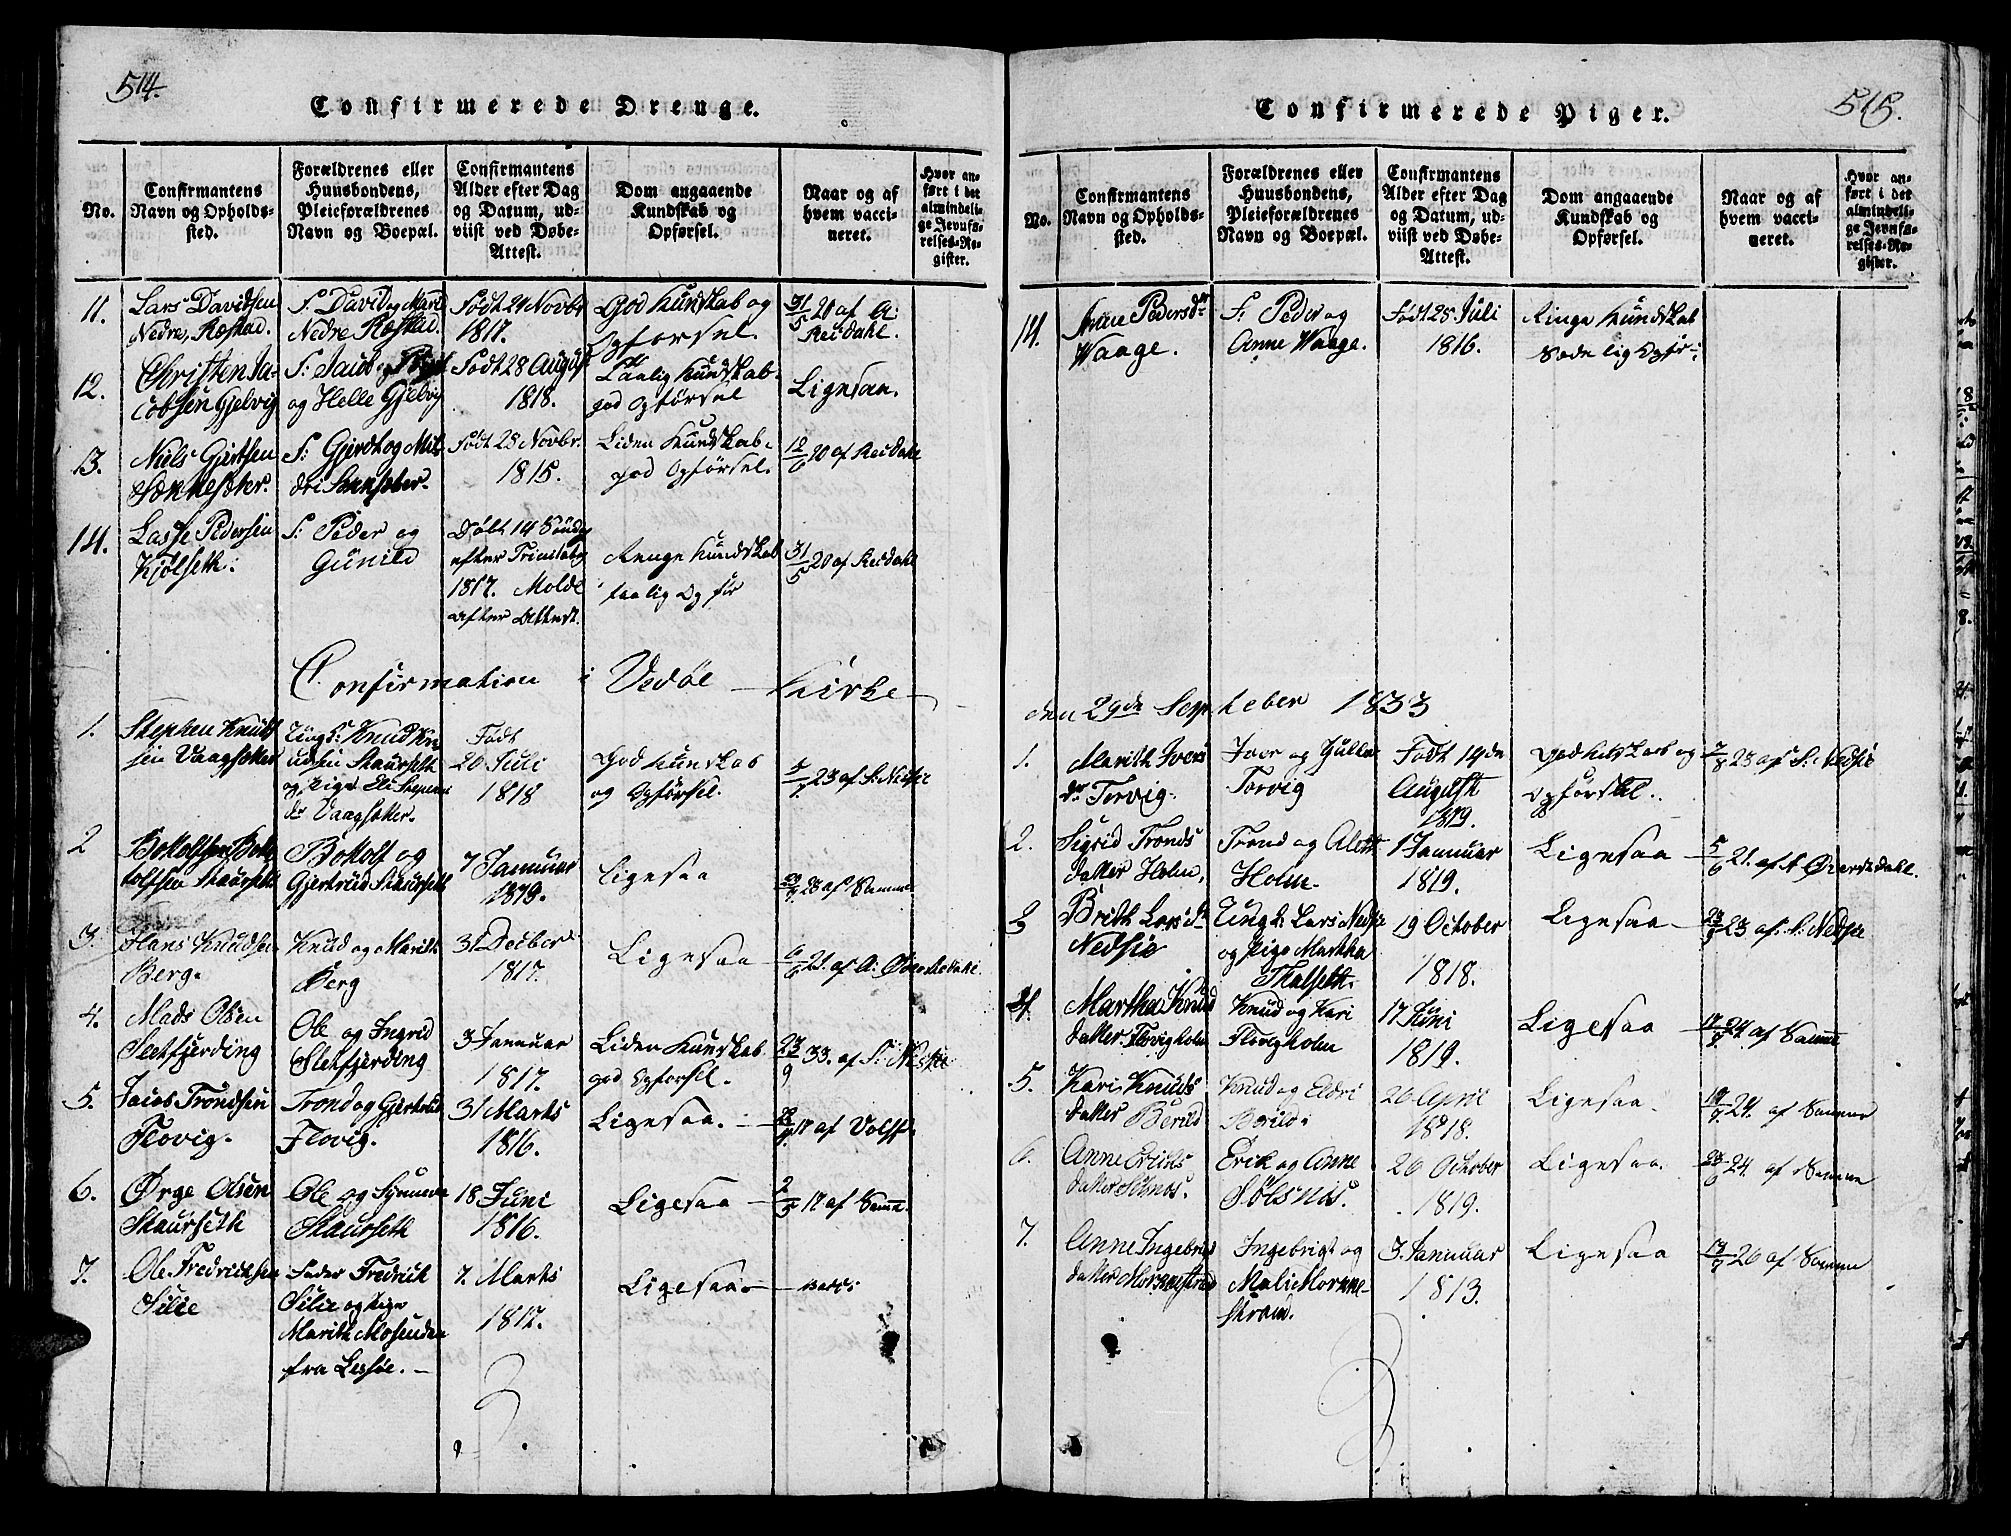 514.
Confirmerede Drenge.
No.
Confirmantens
Navn og Opholds-
sted.
Forældrenes eller
Huusbondens,
Pleieforældrenes
Navn og Boepæl.
Confirmantens
Alder efter Dag
og Datum, ud-
viist ved Døbe-
Attest.
Dom angaaende
Kundskab og
Opførsel.
Naar og af
hvem vacci-
neret.
Hvor an-
ført i det
almindeli-
ge Jevnfø-
relses-Re-
gister.
11.
Lars Davidsen
Nedre Røstad.
S: David og Mari
Nedre Røstad.
Født 24 Novbr
1817.
God Kundskab og
Opførsel.
31/5 20 af A:
Reisdahl.
12.
Christen Ja-
cobsen Gjelvig
S: Jacob
og Helle Gjelvig
Født 28 August
1818.
Taalig Kundskab.
god Opførsel
Ligesaa.
13.
Niels Gjertsen
Sønnesæter.
S: Gjerdt og Mil
dri Sønnsæter.
Født 25 Novbr.
1815.
Liden Kundskab.
god Opførsel.
12/6 20 af Reisdahl
14.
Lasse Pedersen
Kjølseth.
S: Peder og
Gunild
Døbt 14 Søndag
efter Trinitatis
1817. Molde
efter Attest.
Ringe Kundskab
taalig Opfør
31/5 20 af Reisdahl
Confirmation i Vedøe Kirke
1.
Stephen Knud
sen Vaagsæter
Ung S: Knud Kn
udsen Skaurseth
og Pige Eli Stephens
dr Vaagsæter.
Født
20 Juli
1818
God Kunskab
og Opførsel.
23 af S: Nedsie
2
Botolfsen Bo
tolfsen Skaurseth
Botolf og
Gjertrud Skaurseth
7 Januar
1819.
Ligesaa
23 af Samme
3.
Hans Knudsen
Berg.
Knud og Marith
Berg
31 Decber
1817.
Ligesaa
21. af A: Øverdahl.
4.
Mads Olsen
Sletfjerding
Ole og Ingrid
Sletfjerding
3 Januar
1817.
Liden Kunskab
god Opførsel.
23/9 33. af S: Nedsie
5.
Jacob Trondsen
Flovig.
Trond og Gjertrud
Flovig.
31 Marts
1816.
Ligesaa.
17 af Volff.
6.
Ørge Olsen
Skaurseth
Ole og Synneve
Skaurseth
18 Juni
1816.
Ligesaa
2/5 17 af Samme.
7.
Ole Fredriksen
Silie
Fader Fredrik
Silie og Pige
Marith Mosenden
fra Lessøe.
7. Marts
1817.
Ligesaa.
515.
Confirmerede Piger.
No.
Confirmantens
Navn og Opholds-
sted.
Forældrenes eller
Huusbondens,
Pleieforældrenes
Navn og Boepæl.
Confirmantens
Alder efter Dag
og Datum, ud-
viist ved Døbe-
Attest.
Dom angaaende
Kundskab og
Opførsel.
Naar og af
hvem vacci-
neret.
Hvor an-
ført i det
almindeli-
ge Jevnfø-
relses-Re-
gister.
14.
Anne Pedersdr
Waage.
S: Peder og
Anne Waage.
Født 25 Juli
1816.
Ringe Kundskab
Sædelig Opfør:
den 29de September 1833
1.
Marith Ivers
dr Torvig.
Iver og Gulle
Torvig
Født 14de
August
1819.
God Kunskab og
Opførsel.
23 af S: Nedsie
2.
Sigrid Tronds
datter Holm,
Trond og Aleth
Holm.
1 Januar
1819.
Ligesaa
5/6 21. af A Øverdahl.
3
Brith Larsdr
Nedsie
Ung k: Lars Nedsie
og Pige Martha
Thalseth.
19 October
1818.
Ligesaa
23 af S: Nedsie
4.
Martha Knud
datter. Flovigholm
Knud og Kari
Flovigholm
17 Juni
1819.
Ligesaa
24. af Samme
5.
Kari Knuds
datter Berild
Knud og Eldri
Berild.
26 April
1818.
Ligesaa.
24. af Samme
6.
Anne Eriks
datter Sølsnes.
Erik og Anne
Sølsnes.
26 October
1819.
Ligesaa.
24. af Samme
7.
Anne Ingebrigts
datter Mornnestrand
Ingebrigt og
Mali Mornne-
strand.
3. Januar
1813.
Ligesaa
26 af Samme